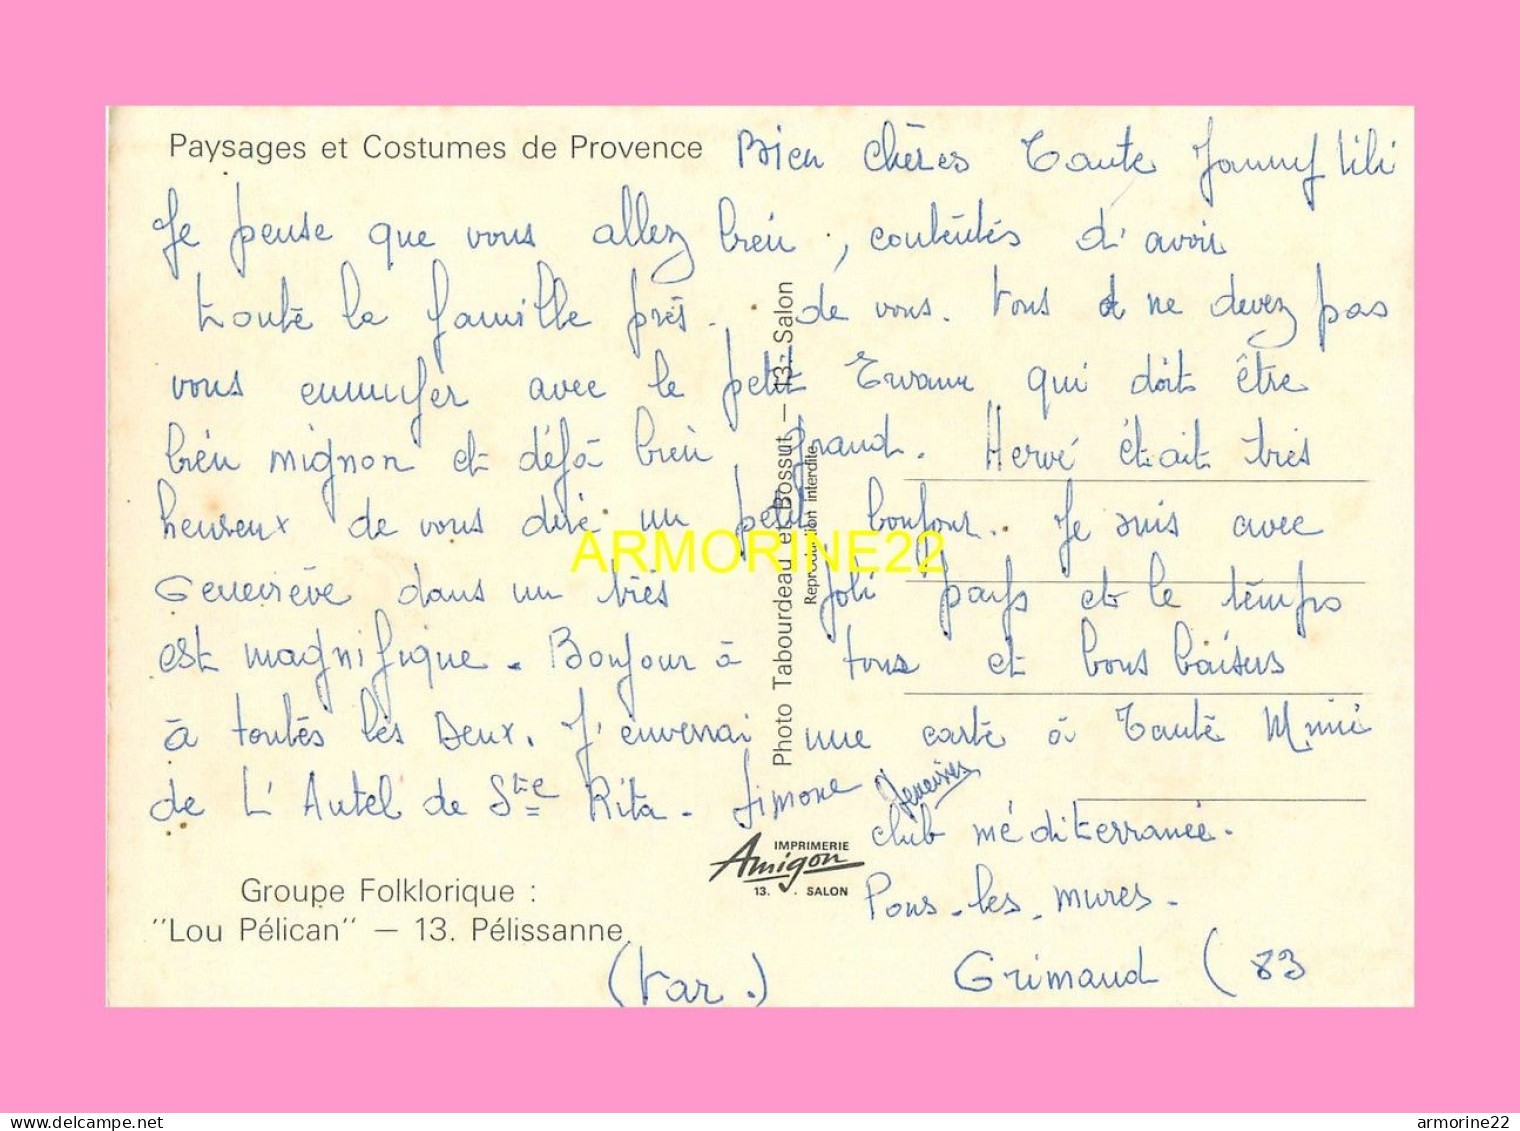 Paysages et Costumes de Provence
Bien chères Tante
Je pense que vous allez bien, contentés d'avoir
toute la famille près de vous. Vous ne devez pas
vous ennuyer avec le petit Erwann qui doit être
bien mignon et déjà bien grand. Hervé était très
heureux de vous dire un petit bonjour. Je suis avec
Geneviève dans un très joli pays et le temps
est magnifique. Bonjour à tous et bons baisers
à toutes les deux. J'enverrai une carte à Tante Mimi
de L'Autel de Ste Rita. Simone
club méditerranée.
Pons-les-mures.
Grimaud (83
(Var.)
Photo Tabourdeau et Bossut – 13. Salon
Reproduction interdite
IMPRIMERIE
Amigon
13. SALON
Groupe Folklorique :
"Lou Pélican" – 13. Pélissanne
ARMORINE22
www.delcampe.net
armorine22